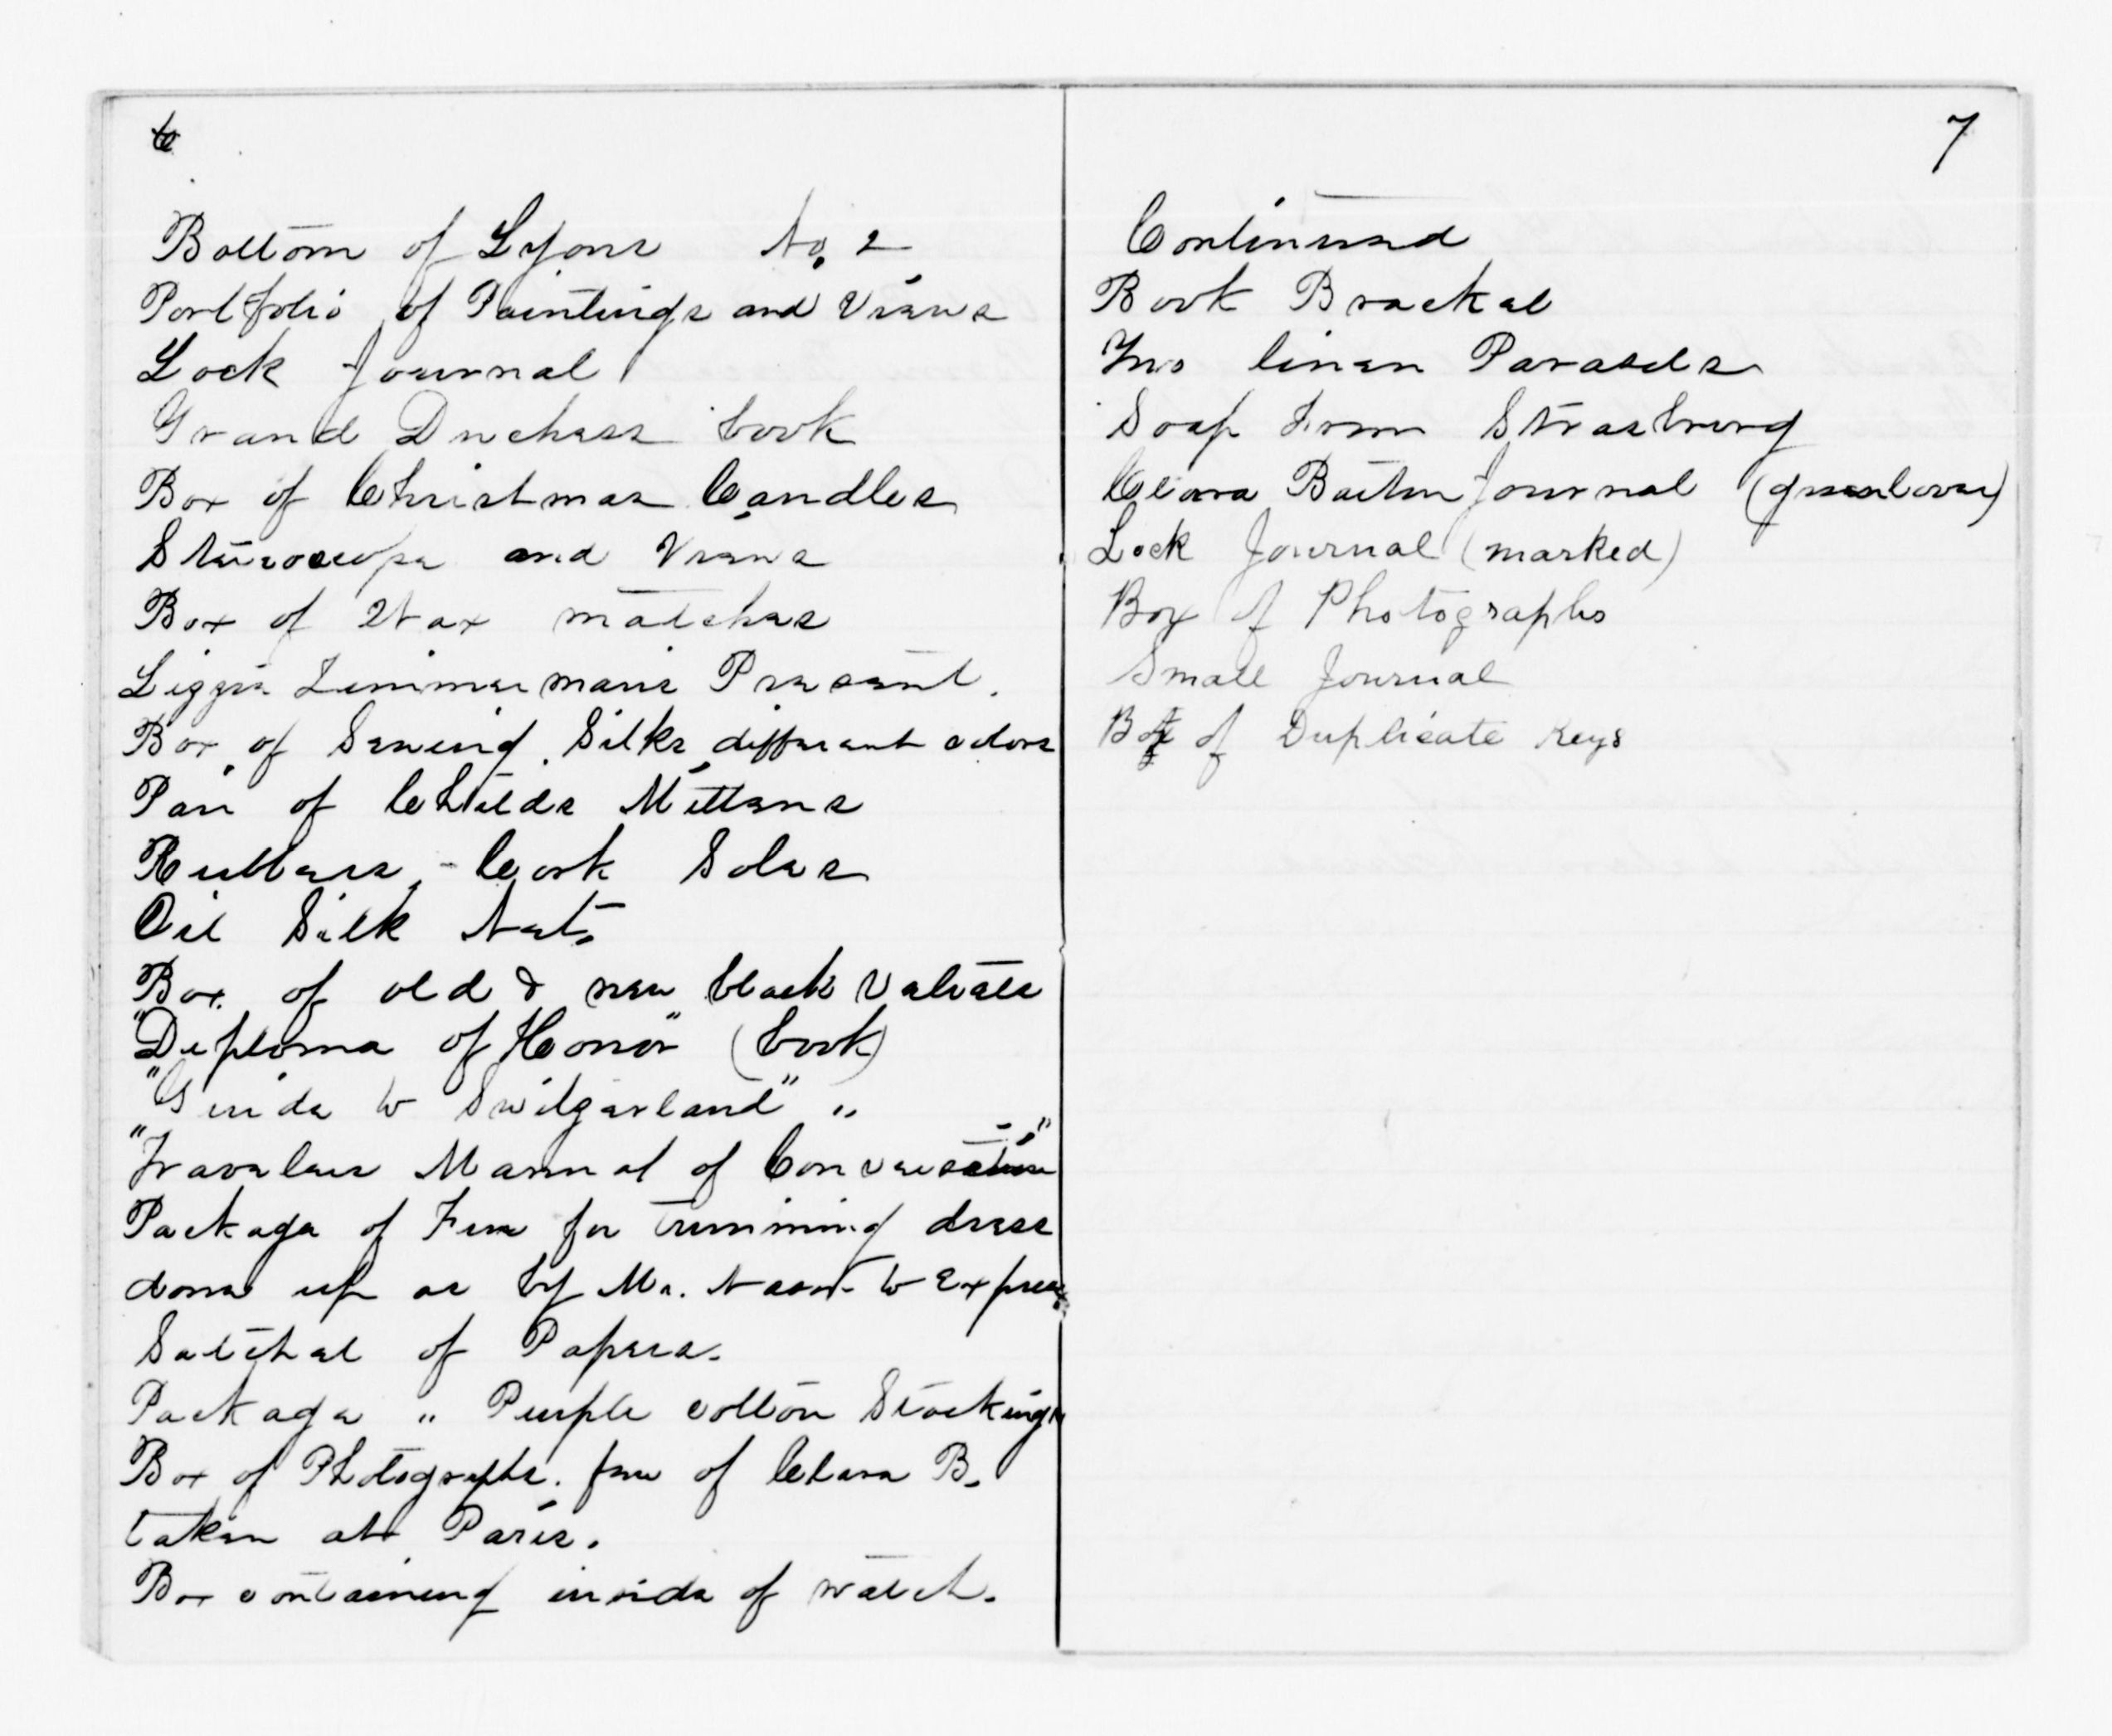 6
Bottom of Lyons No. 2
Portfolio of Paintings and Views
Lock Journal
Grand Duchess book
Box of Christmas Candles
Stereoscope and Views
Box of Wax matches
Lizzie Zimmermans Present.
Box of Sewing Silks different colors
Pair of Childs Mittens
Rubbers, - Cork Soles
Oil Silk Net.
Box of old & new black Velvets
"Diploma of Honor" (book)
"Guide to Switzerland" "
"Travelers Manual of Conversation"
Package of Fur for trimming dress
done up as by Mr. to Express
Satchel of Papers.
Package " Purple cotton Stockings
Box of Photographs. few of Clara B.
taken at Paris.
Box containing inside of watch.
7
Continued
Book Bracket
Two linen Parasols
Soap from Strasburg
Clara Barton Journal (green cover)
Lock Journal (marked)
Box of Photographs
Small Journal
Box of Duplicate Keys